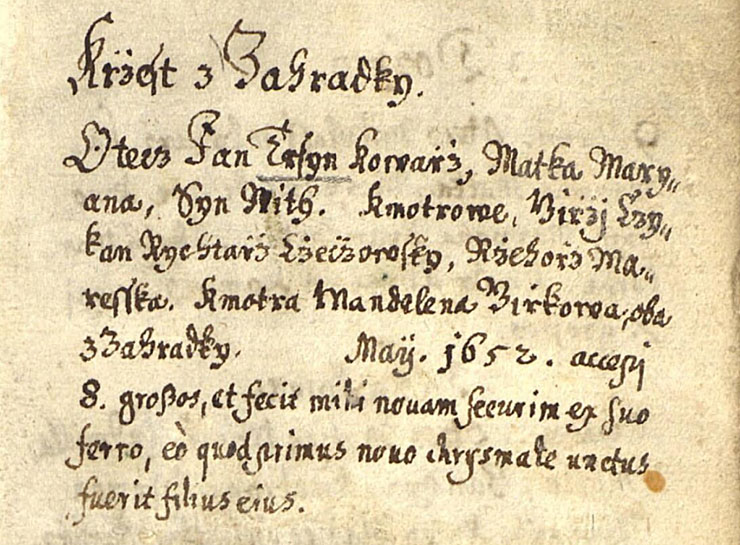 Krżest z Zahradky.
Otecz Jan Trsyn Kowarż, Matka Mary„
ana, Syn Nith. Kmotrowe, Birżj Czy„
kan Rychtarż Czeczorowsky, Rżehorż Ma„
resska. Kmotra Mandelena Birkowa, oba
z Zahradky. Maÿ. 1652. accepi
8. großos, et fecit mihi novam securim ex suo
ferro, eò quod primus novo chrysmate unctus
fuerit filius eius.